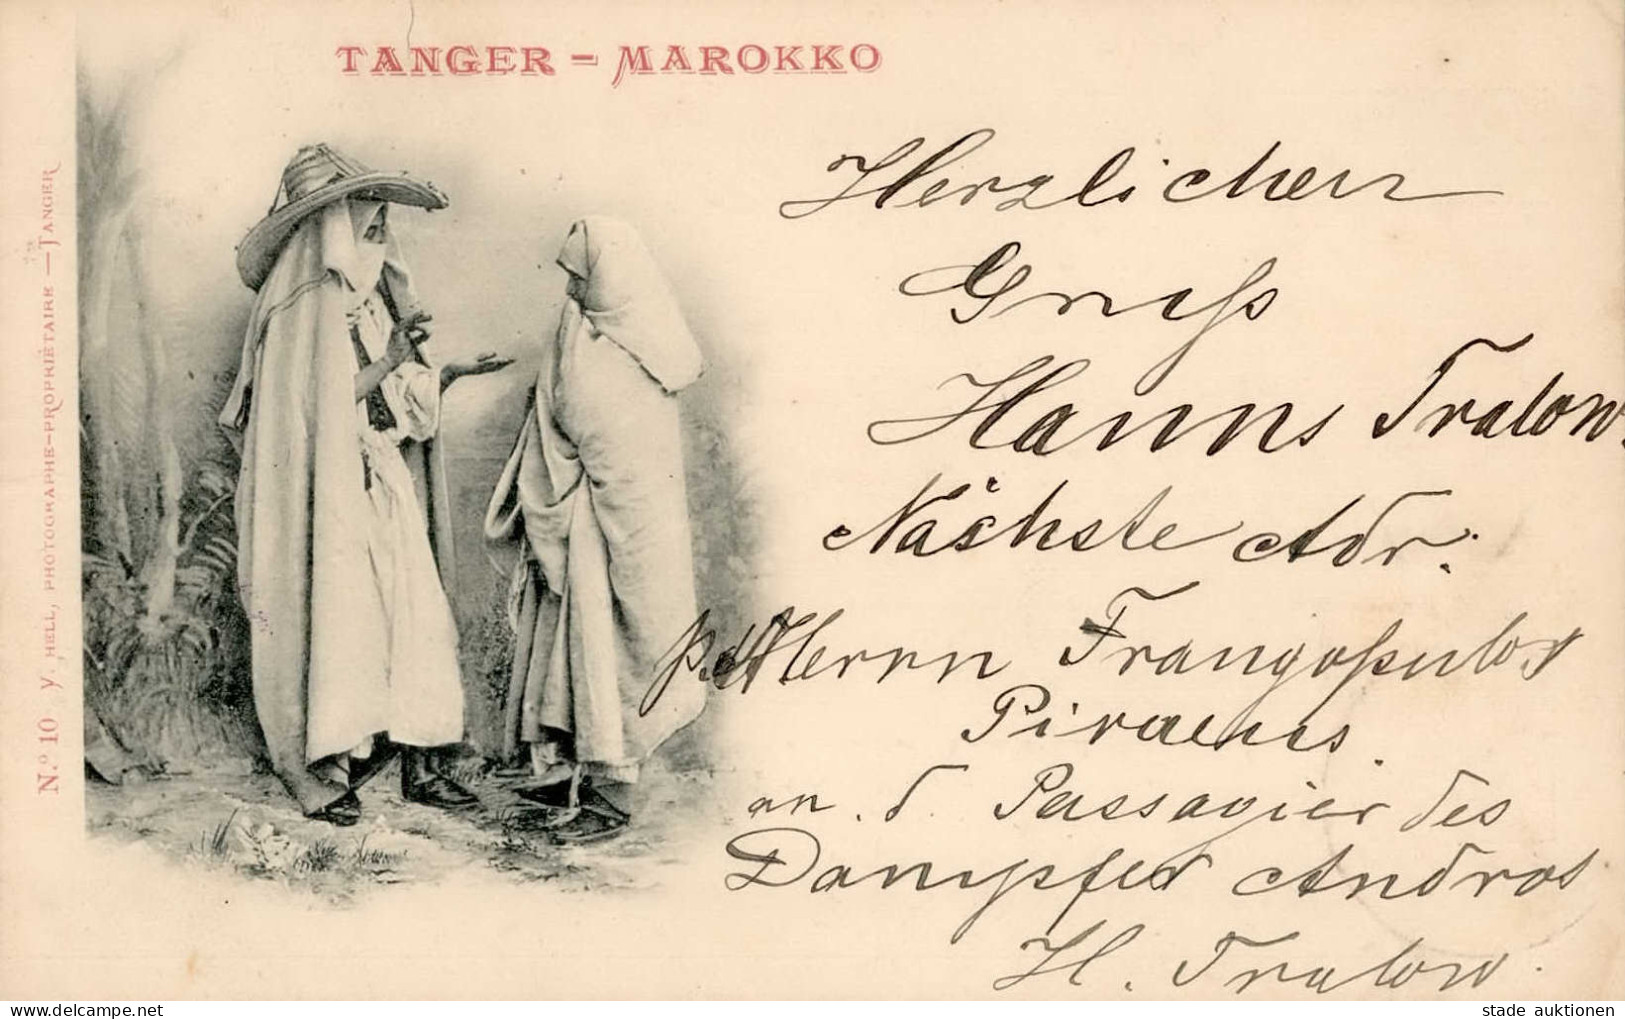 TANGER - MAROKKO
N.º 10 Y. HELL, PHOTOGRAPHE-PROPRIÉTAIRE — TANGER
Herzlichen
Gruß
Hanns Tralow.
Nächste Adr.
p. Ad. Herrn Frangopulos
Piraeus.
an d. Passagier des
Dampfer Andros
H. Tralow.
delcampe.net
stade auktionen